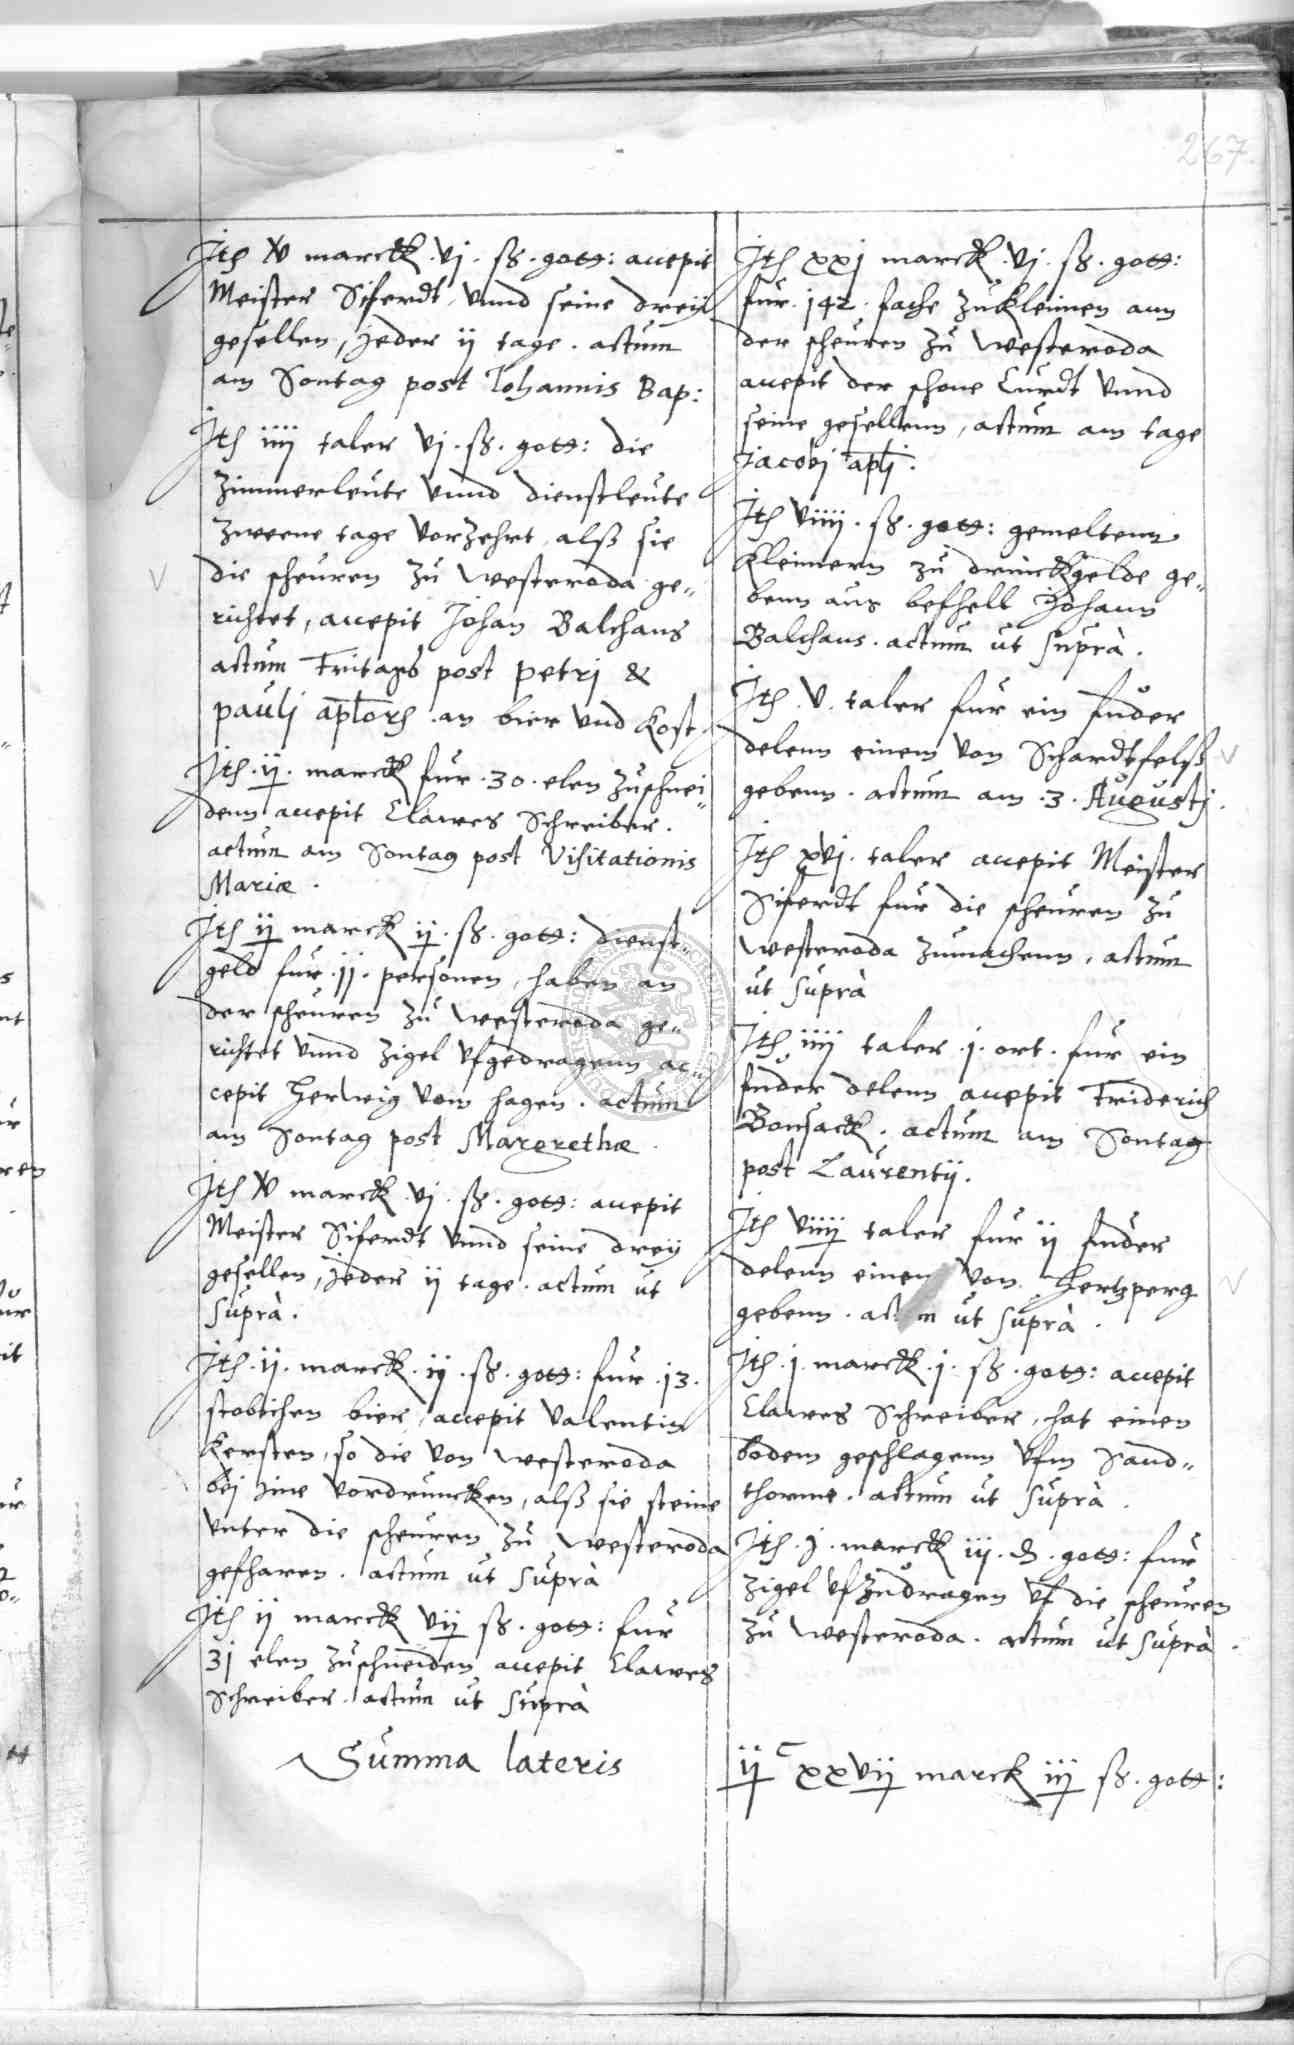 267.
Jtē xv marck. vj. ß. gott: accepit
Meister Siferdt, vnnd seine dreij
gesellen, jeder ij tage. actum
am Sontag post Iohannis Bap:
Jtē iiij taler vj. ß. gott: die
zimmerleute vnnd dienstleute
zweene tage vorzehrt, alß sie
die scheuren zu westeroda ge„
richtet, accepit Johan Balthaus
actum Fritags post petrj &
paulj apl̄orē. an bier vnd kost
Jtē. ij. marck fur. 30. elen zuschnei„
denn accepit Clawes Schreiber.
actum am Sontag post Visitationis
Mariæ.
Jtē ij marck ij. ß. gott: dienst„
geld fur. jj. personen, haben an
der scheuren zu westeroda ge„
richtet vnnd zigel vfgedragenn ac„
cepit Herwig vom hagen. actum
am Sontag post Margrethæ.
Jtē xv marck. vj. ß. gott: accepit
Meister Siferdt vnnd seine dreij
gesellen, jeder ij tage. actum ut
suprà.
Jtē. ij. marck. ij. ß. gott: fur. j3.
stobichen bier, accepit Valentin
Kersten, so die von westeroda
bej jme vordruncken, alß sie steine
vnter die scheuren zu westeroda
gefharen. actum ut suprà
Jtē ij marck vij ß. gott: fur
3j elen zuschneiden accepit Clawes
Schreiber. actum ut suprà
Summa lateris
Jtē xxj marck. vj. ß. gott:
fur. j42. fache zukleimen ann
der scheuren zu westeroda
accepit der schone Curdt vnnd
seine gesellenn, actum am tage
Jacobj apl̄j.
Jtē viiij. ß. gott: gemeltenn
kleimern zu drinckgelde ge„
benn aus befhell Johann
Balthaus. actum ut suprà.
Jtē. v. taler fur ein fuder
delenn einem von Schardtfelß
gebenn. actum am. 3. Augustj.
Jtē xvj. taler accepit Meister
Siferdt fur die scheuren zu
westeroda zumachenn, actum
ut suprà
Jtē iiij taler. j. ort. fur ein
fuder delenn accepit Friderich
Bonsack. actum am Sontag
post Laurentij.
Jtē viiij taler fur ij fuder
delenn einem von Hertzperg
gebenn. actum ut suprà.
Jtē. j. marck. j. ß. gott: accepit
Clawes Schreiber, hat einen
bodem geschlagenn vfm Sand„
thorme. actum ut suprà.
Jtē. j. marck iij. ₰. gott: fur
zigel vfzudragen vf die scheuren
zu westeroda. actum ut suprà.
ij C xxvij marck iij ß. gott: